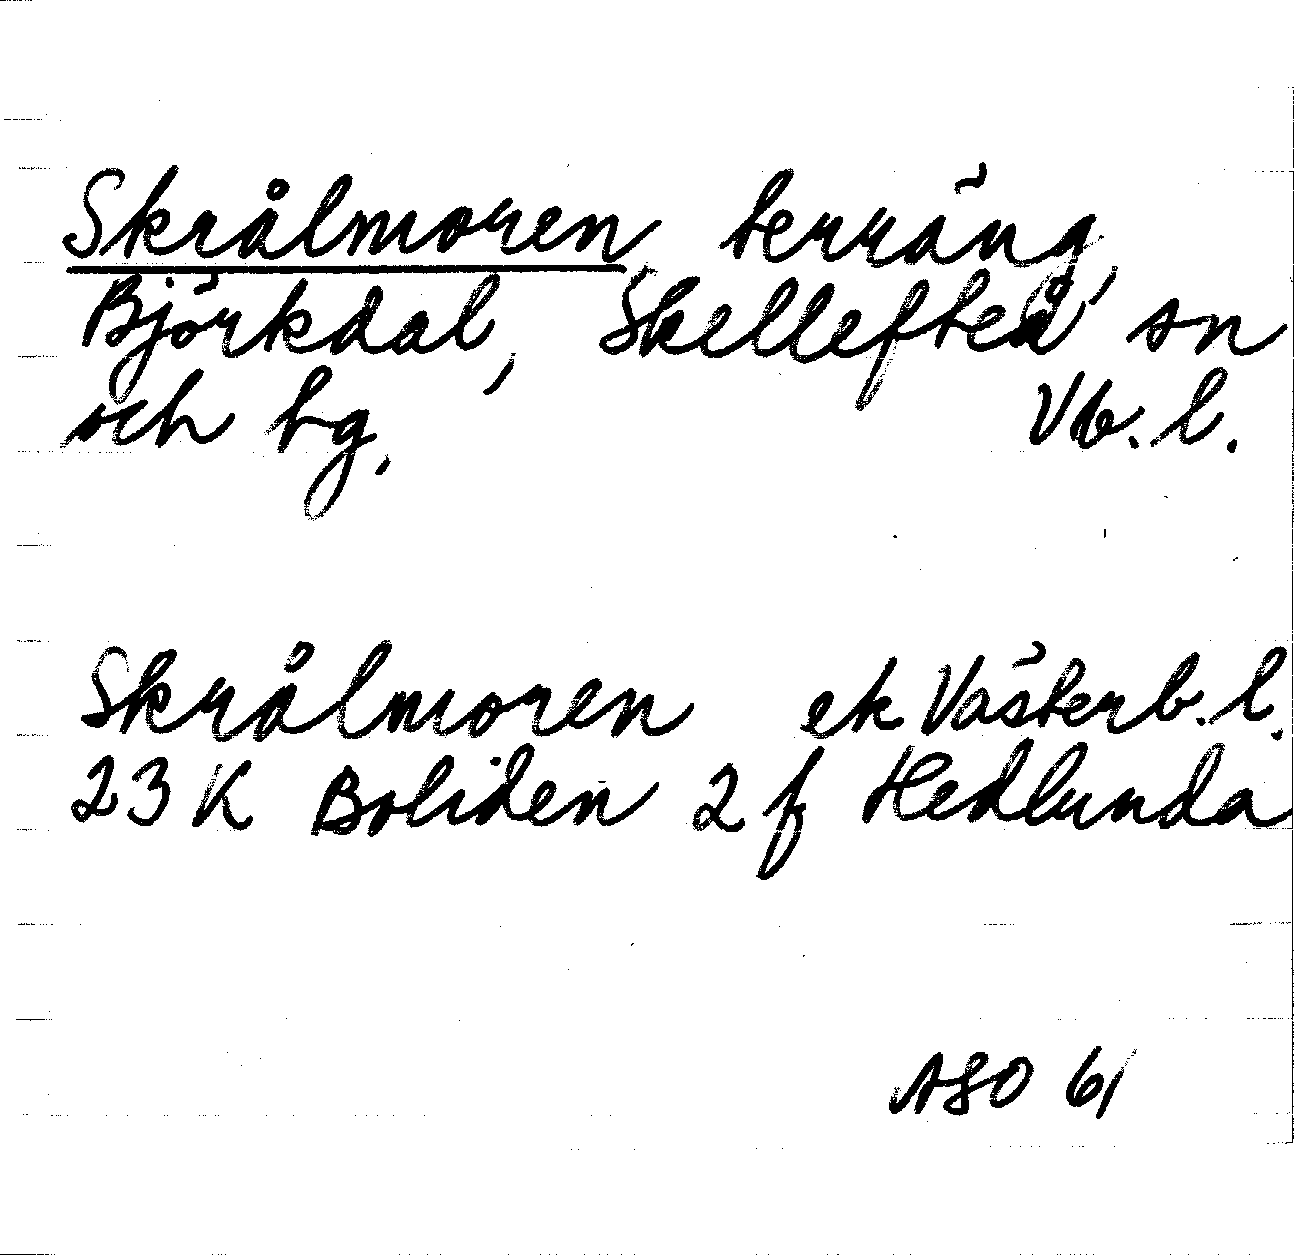 Skrålmoren, terräng,
Björkdal, Skellefteå sn
och tg. Vb. l.
Skrålmoren ek Västerb. l.
23 K Boliden 2 f Hedlunda
ASO 61